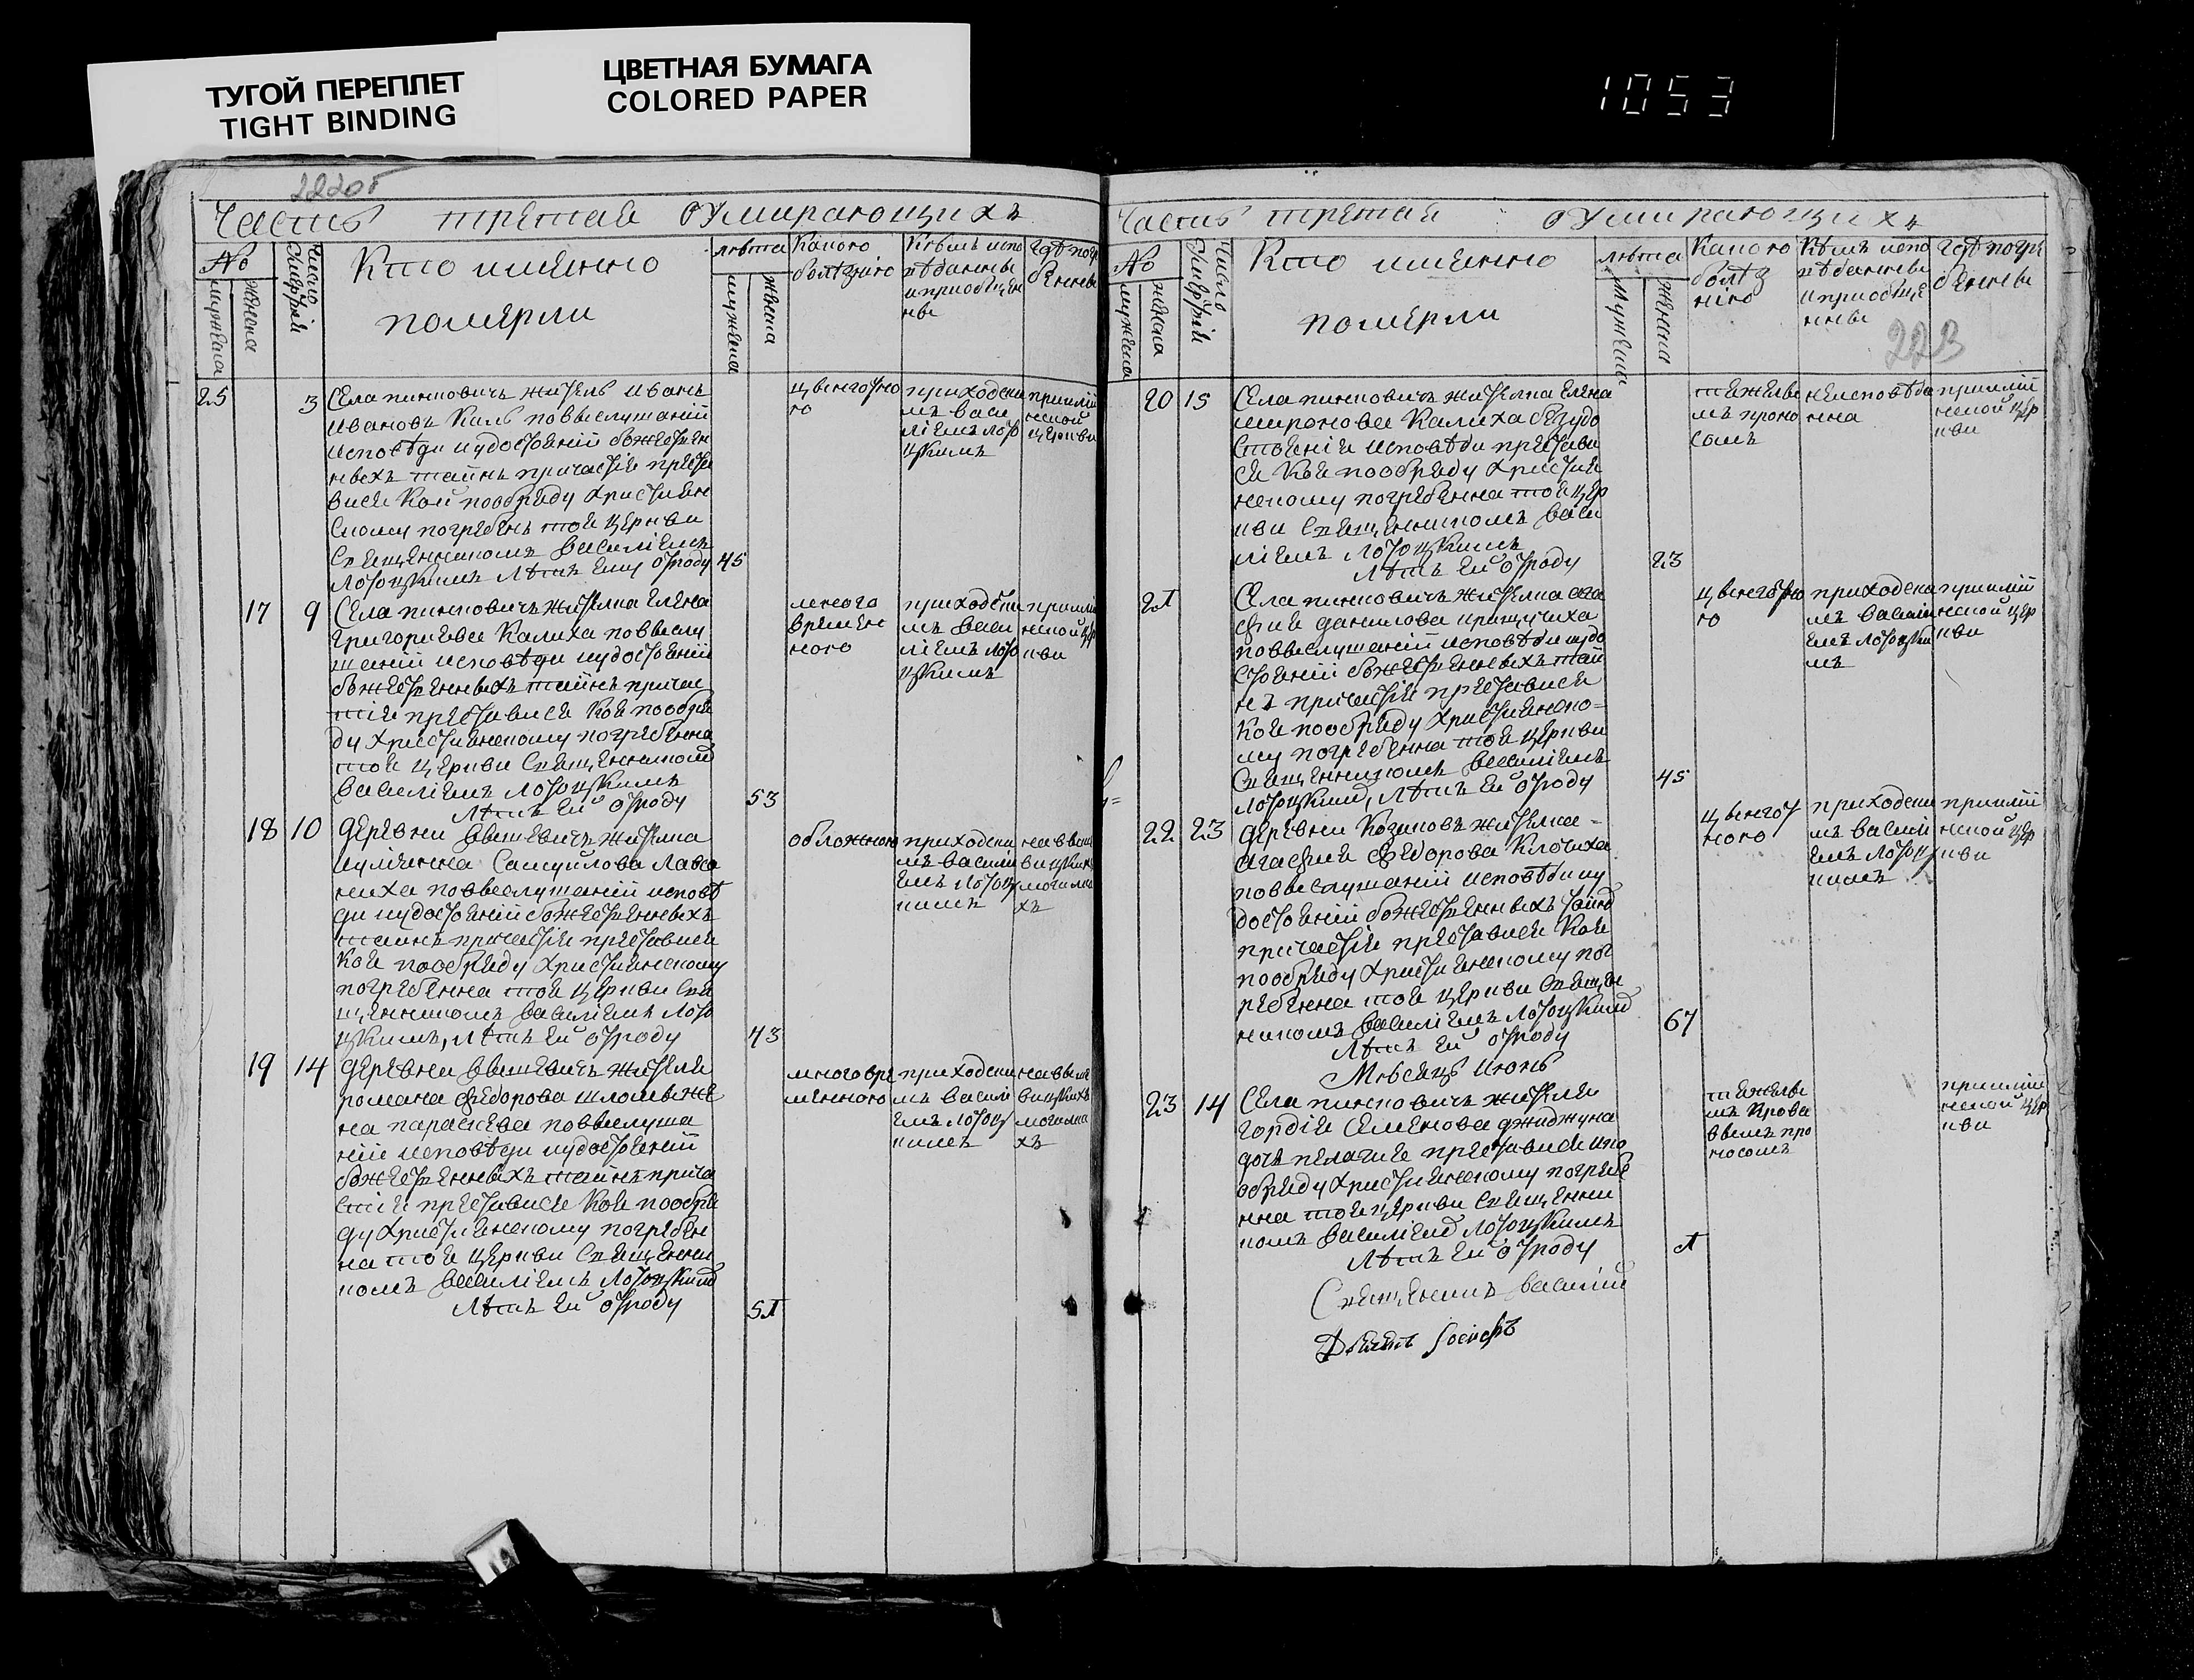 ТУГОЙ ПЕРЕПЛЕТ
TIGHT BINDING
ЦВЕТНАЯ БУМАГА
COLORED PAPER
1053
222об
Часть третая оУмирающихъ
No
мужеска
женска
Число смертей
Кто именно
померли
лѣта
мужеска
женска
Какою
болѣзнію
Кѣмъ испо
вѣданны
и приобщен
ны
Гдѣ погре
бенны
25
3
Села пинковичъ житель иванъ
ивановъ Каль по выслушаніи
исповѣди и удостоеніи божествен
ныхъ таинъ причастія преста
вися Кой по обряду христиан
скому погребенъ тоя церкви
Священникомъ василіемъ
Лотоцкимъ Лѣтъ ему отроду
45
цынготно
ю
приходски
мъ васи
ліемъ лото
цкимъ
при мій
ской
церкви
17
9
Села пинковичъ жителка елена
григориева Калиха по выслу
шаніи исповѣди и удостоеніи
божественныхъ таинъ прича
стія преставися Коя по обря
ду христианскому погребенна
тоя церкви Священникомъ
василіемъ лотоцкимъ
Лѣтъ ей отроду
53
многo
времен
ною
приходски
мъ васи
ліемъ лото
цкимъ
при мій
ской цер
кви
18
10
деревни вышевичъ жителка
иулиянна Самуйлова
по выслушаніи исповѣ
ди и удостоеніи божественныхъ
таинъ причастія преставися
Коя по обряду христианскому
погребенна тоя церкви Свя
щенникомъ василіемъ лото
цкимъ, лѣтъ ей отроду
43
обложною
приходски
мъ василі
емъ лотоц
кимъ
на выше
вицкихъ
могилка
хъ
19
14
деревни вышевичъ жителя
романа федорова жe
на параскева по выслуша
ніи исповѣди и удостоеніи
божественныхъ таинъ прича
стія преставися Коя по обря
ду христианскому погребен
на тоя церкви Священни
комъ василіемъ лотоцкимъ
Лѣтъ ей отроду
51
многовре
менною
приходски
мъ василі
емъ лотоц
кимъ
на выше
вицкихъ
могилка
хъ
Часть третая оУмирающихъ
No
мужеска
женска
Число смертей
Кто именно
померли
лѣта
мужеска
женска
Какою
болѣз
нію
Кѣмъ испо
вѣданны
и приобще
нны
Гдѣ погре
бенны
223
20
15
Села пинковичъ жителка елена
миронова Калиха без удо
стоенія исповѣди престави
ся Коя по обряду христиа
нскому погребенна тоя цер
кви Священникомъ васи
ліемъ лотоцкимъ
Лѣтъ ей отроду
23
тяжелы
мъ проно
сомъ
неисповѣда
нна
при мій
ской цер
кви
21
Села пинковичъ жителка ага
фия данилова
по выслушаніи исповѣди и удо
стоеніи божественныхъ таи
нъ причастія преставися
Коя по обряду христианско-
му погребенна тоя церкви
Священникомъ василіемъ
лотоцкимъ, лѣтъ ей отроду
45
цынготно
ю
приходски
мъ василі
емъ лотоцки
мъ
при мій
ской цер
кви
22
23
деревни Козаковъ жителка-
агафия федорова Клочиха
по выслушаніи исповѣди и у
достоеніи божественныхъ таинъ
причастія преставися Коя
по обряду христианскому пог
ребенна тоя церкви Священ
никомъ василіемъ лотоцкимъ
Лѣтъ ей отроду
67
цынгот
ною
приходски
мъ василі
емъ лотоц
кимъ
при мій
ской цер
кви
Мѣсяцъ июнь
23
14
Села пинковичъ жителя
гордія Семенова джиджука
дочъ пелагия преставися и по
обряду христианскому погребе
нна тоя церкви Священни
комъ василіемъ лотоцкимъ
Лѣтъ ей отроду
1
тяжелы
мъ крова
вымъ про
носомъ
при мій
ской цер
кви
Священникъ василій